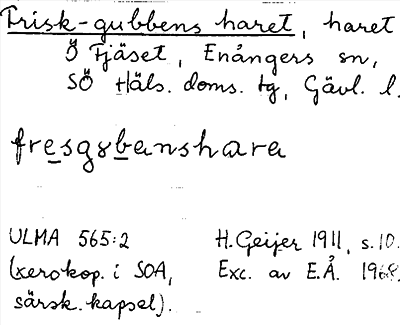 Frisk-gubbens haret, haret
Ö Fjäset, Enångers sn,
SÖ Häls. doms. tg, Gävl. l.
fresgubenshara
ULMA 565:2 H. Geijer 1911, s. 10.
(xerokop. i SOA, Exc. av E.Å. 1968.
särsk. kapsel).